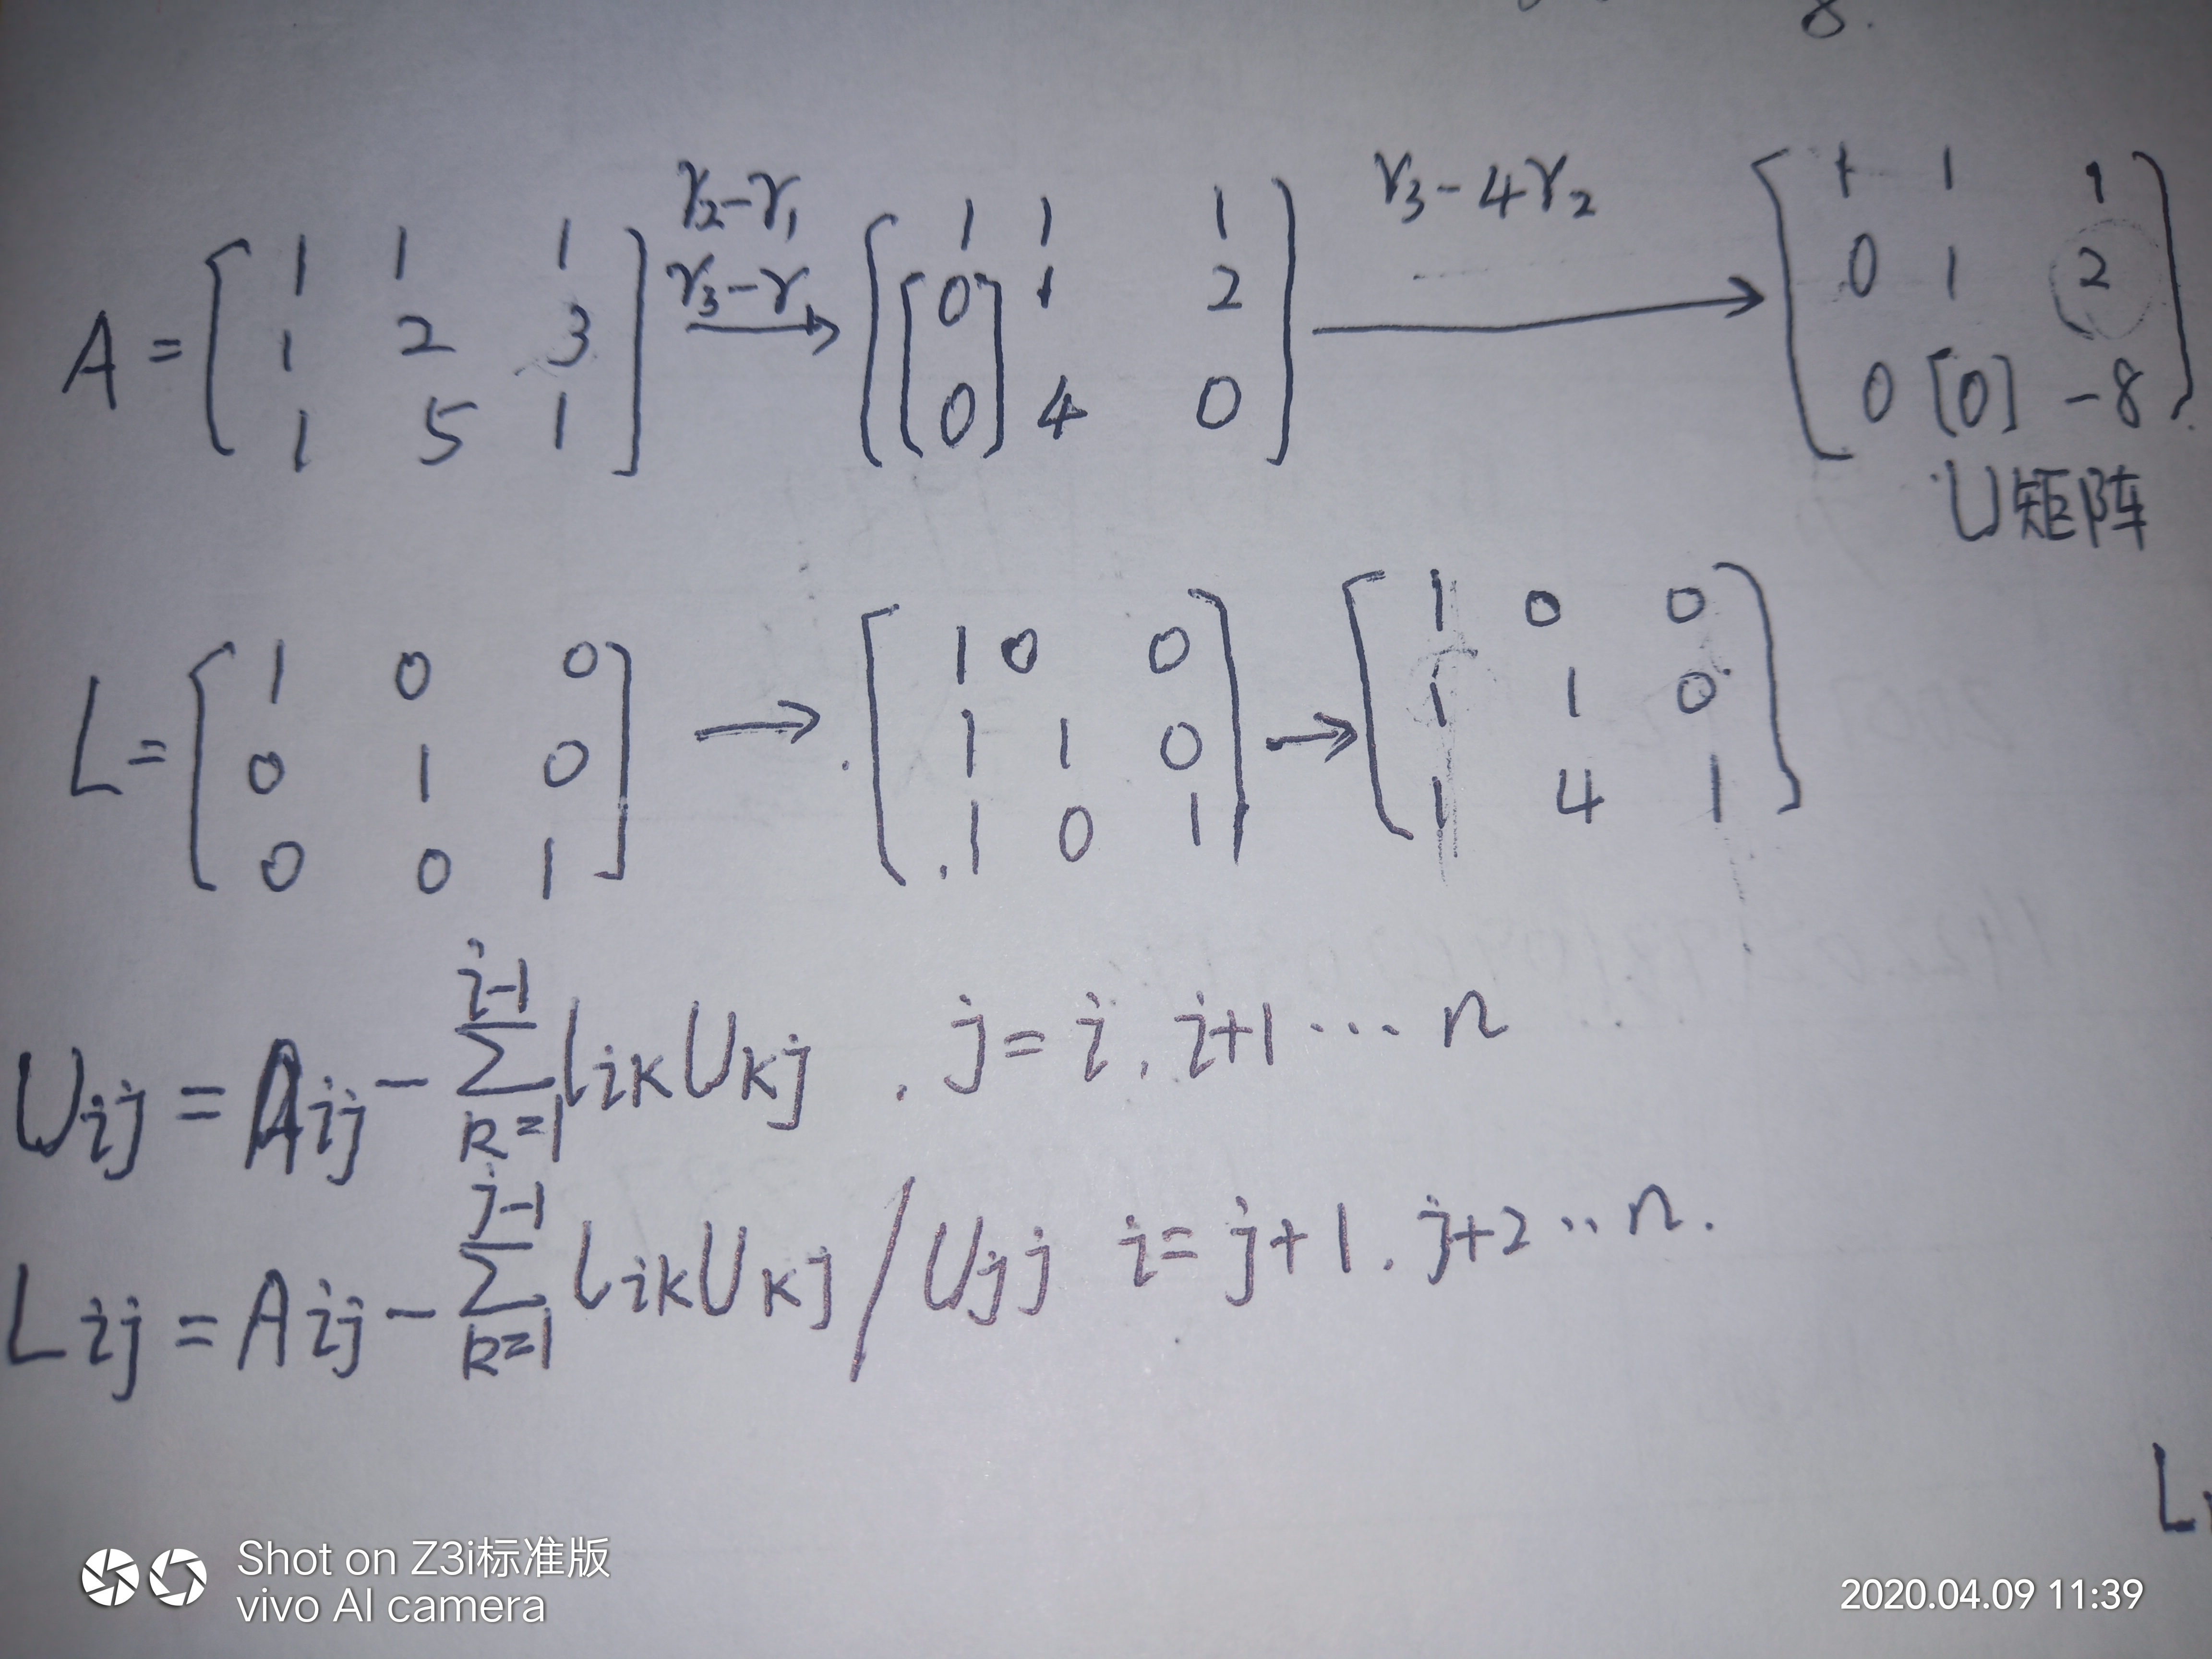 8.
A = [ 1 1 1 ; 1 2 3 ; 1 5 1 ] r2-r1 r3-r1 → [ 1 1 1 ; [0 1 2 ; 0] 4 0 ] r3-4r2 → [ 1 1 1 ; 0 1 2 ; 0 [0] -8 ]
U矩阵
L = [ 1 0 0 ; 0 1 0 ; 0 0 1 ] → [ 1 0 0 ; 1 1 0 ; 1 0 1 ] → [ 1 0 0 ; 1 1 0 ; 1 4 1 ]
Uij = Aij - ∑_{k=1}^{i-1} lik Ukj . j = i, i+1 ··· n
Lij = Aij - ∑_{k=1}^{j-1} lik Ukj / Ujj i = j+1, j+2 ·· n.
Shot on Z3i标准版
vivo AI camera
2020.04.09 11:39